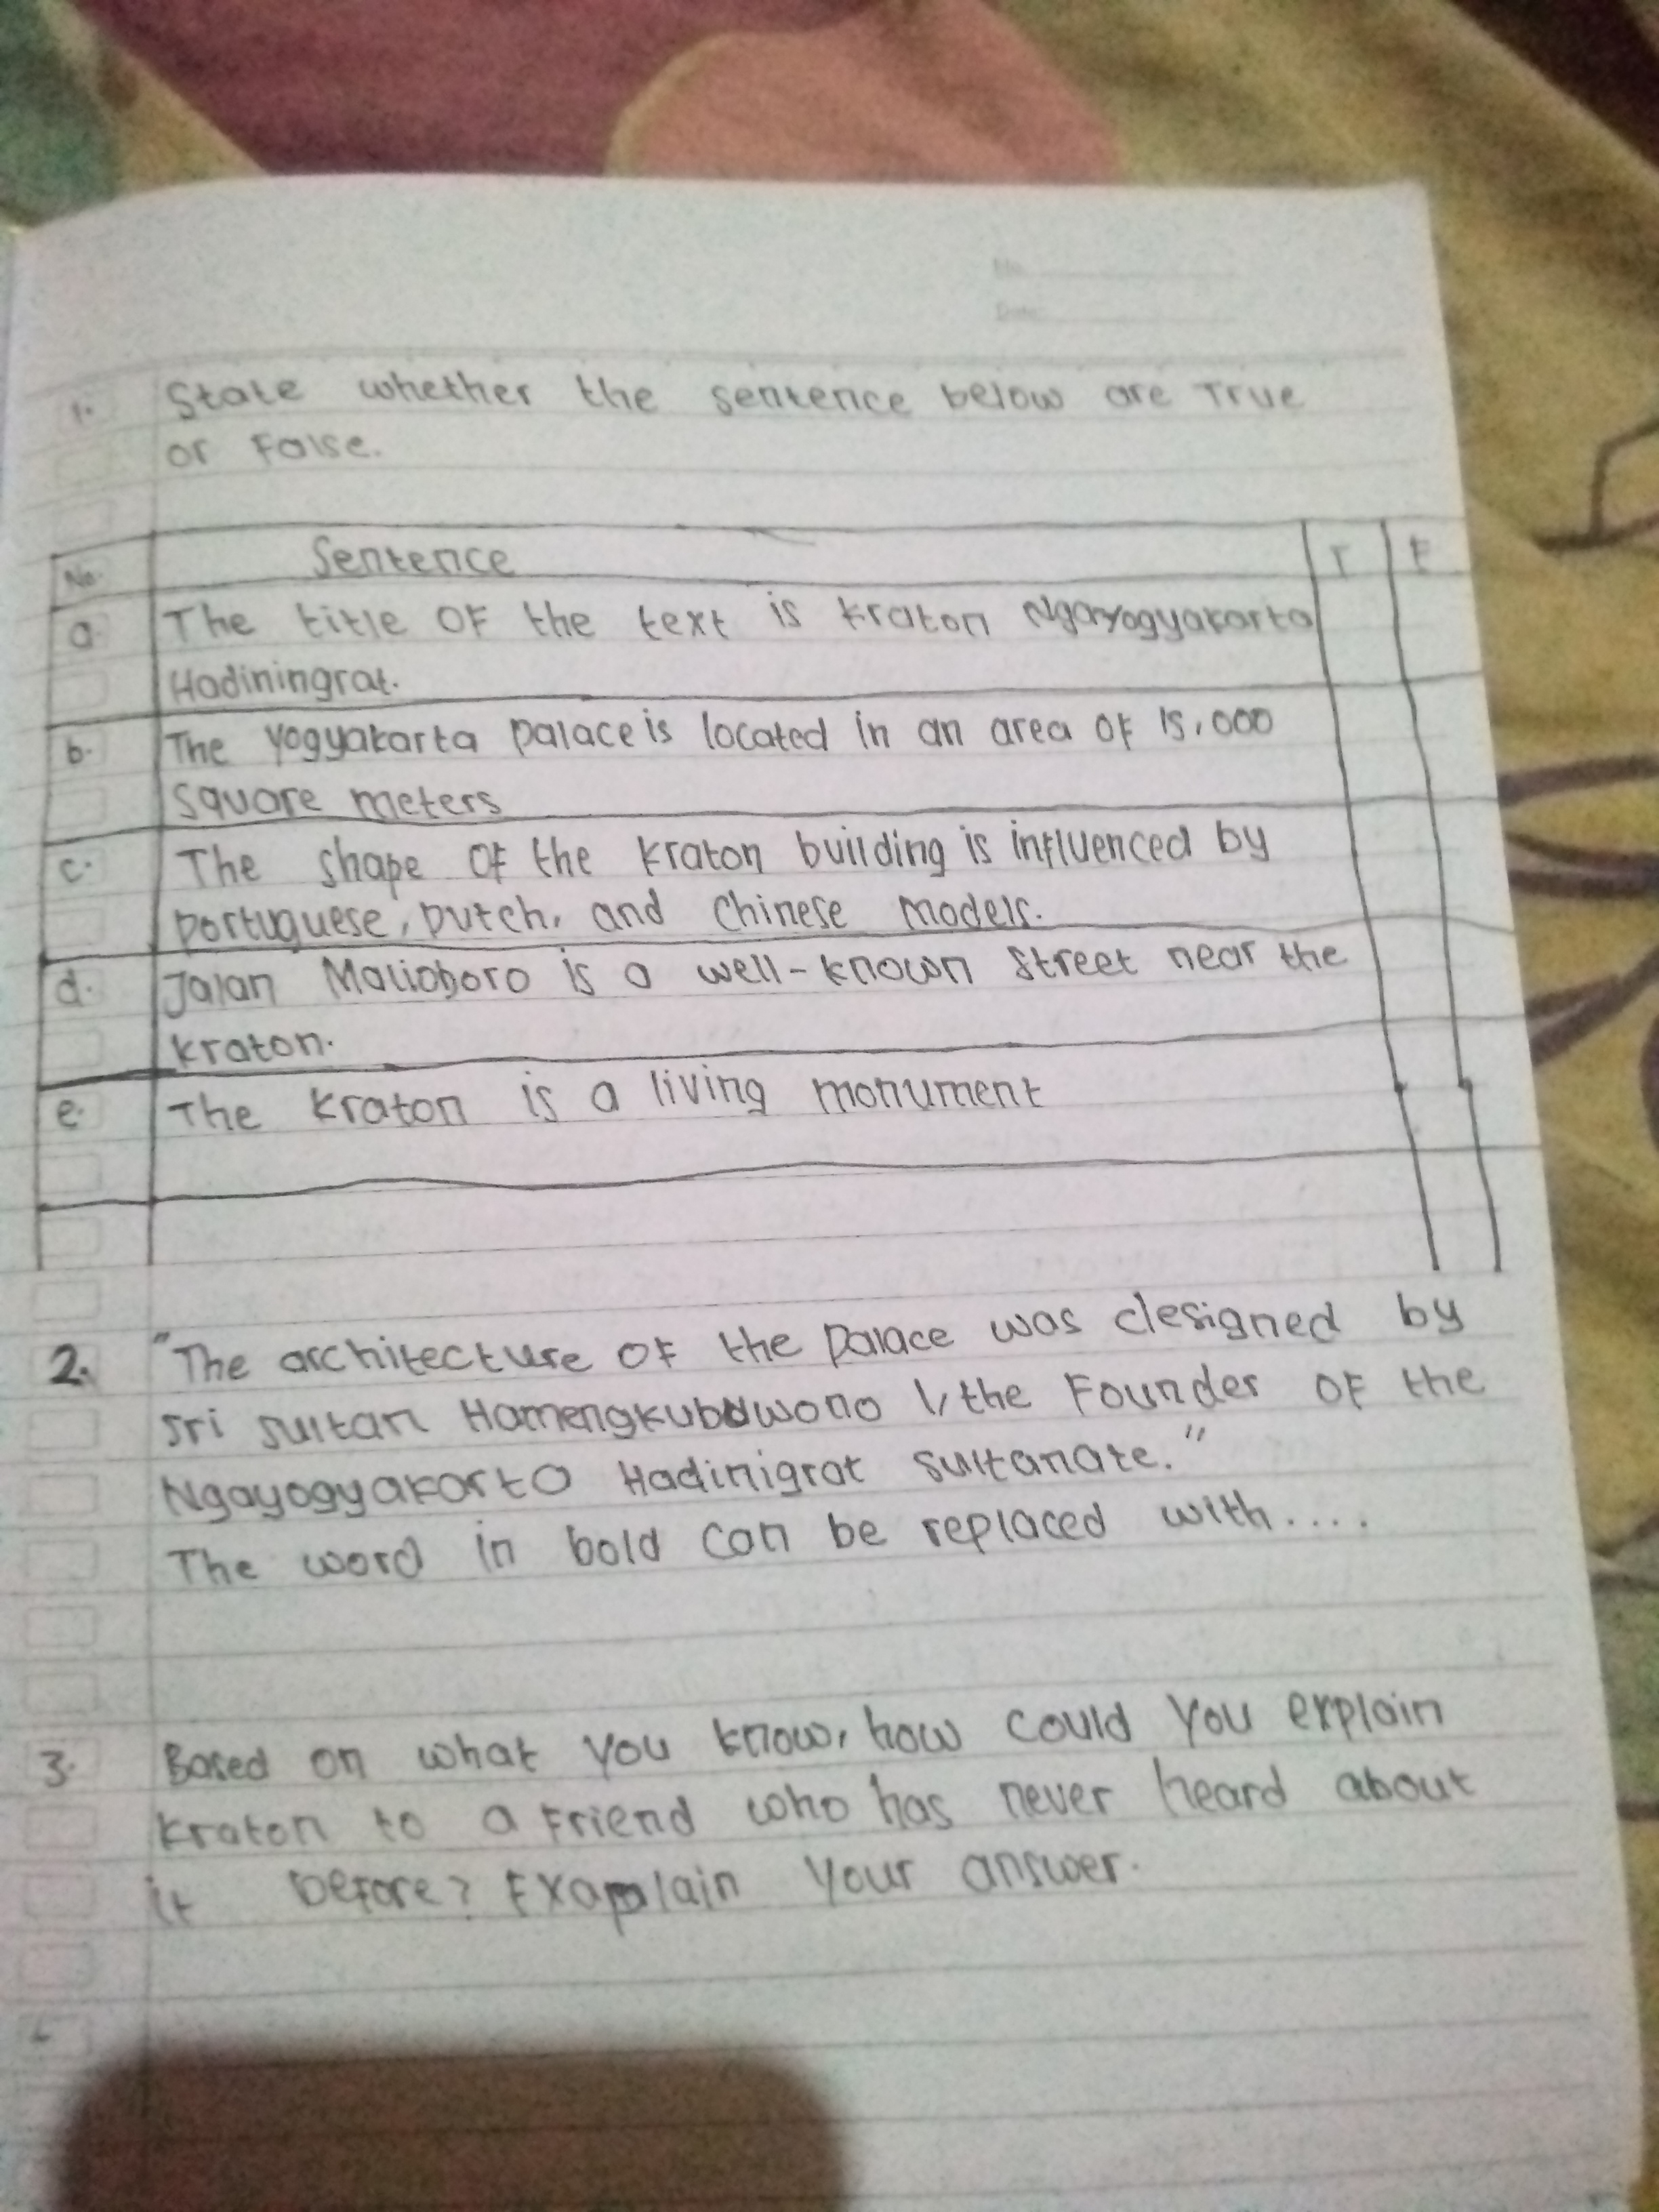 No
Date
1. State whether the sentence below are True
or False.
No. Sentence T F
a. The title of the text is kraton Ngayogyakarta
Hadiningrat.
b. The Yogyakarta palace is located in an area of 15,000
square meters
c. The shape of the kraton building is influenced by
portuguese, Dutch, and Chinese models.
d. Jalan Malioboro is a well-known street near the
kraton.
e. The kraton is a living monument
2. "The architecture of the palace was designed by
Sri Sultan Hamengkubuwono I, the Founder of the
Ngayogyakarta Hadinigrat Sultanate."
The word in bold can be replaced with....
3. Based on what you know, how could you explain
kraton to a friend who has never heard about
it before? Exaplain your answer.